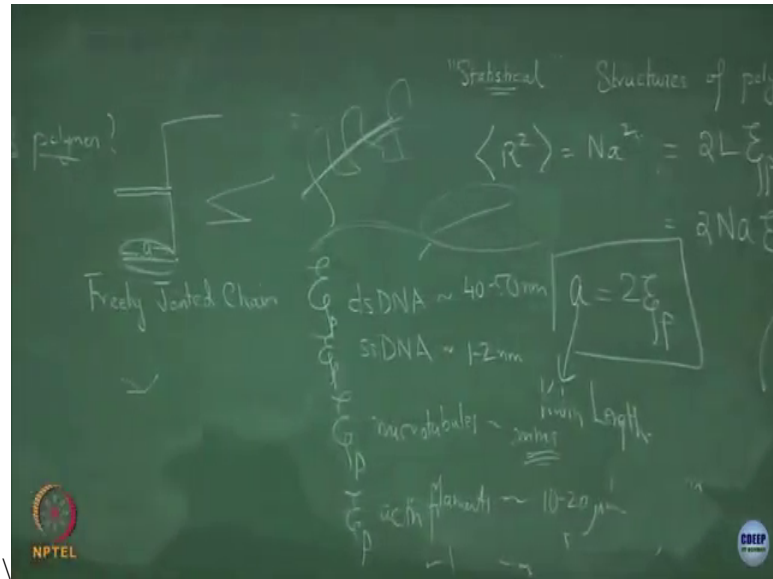 "Statistical" Structures of poly
polymer?
⟨R²⟩ = Na² = 2L ξp
= 2Na ξ
a
Freely Jointed Chain
ξp dsDNA ~ 40-50nm
a = 2ξp
ξp ssDNA ~ 1-2nm
Kuhn Length
ξp microtubules ~ mms
ξp actin filaments ~ 10-20 μm
NPTEL
CDEEP
IIT BOMBAY